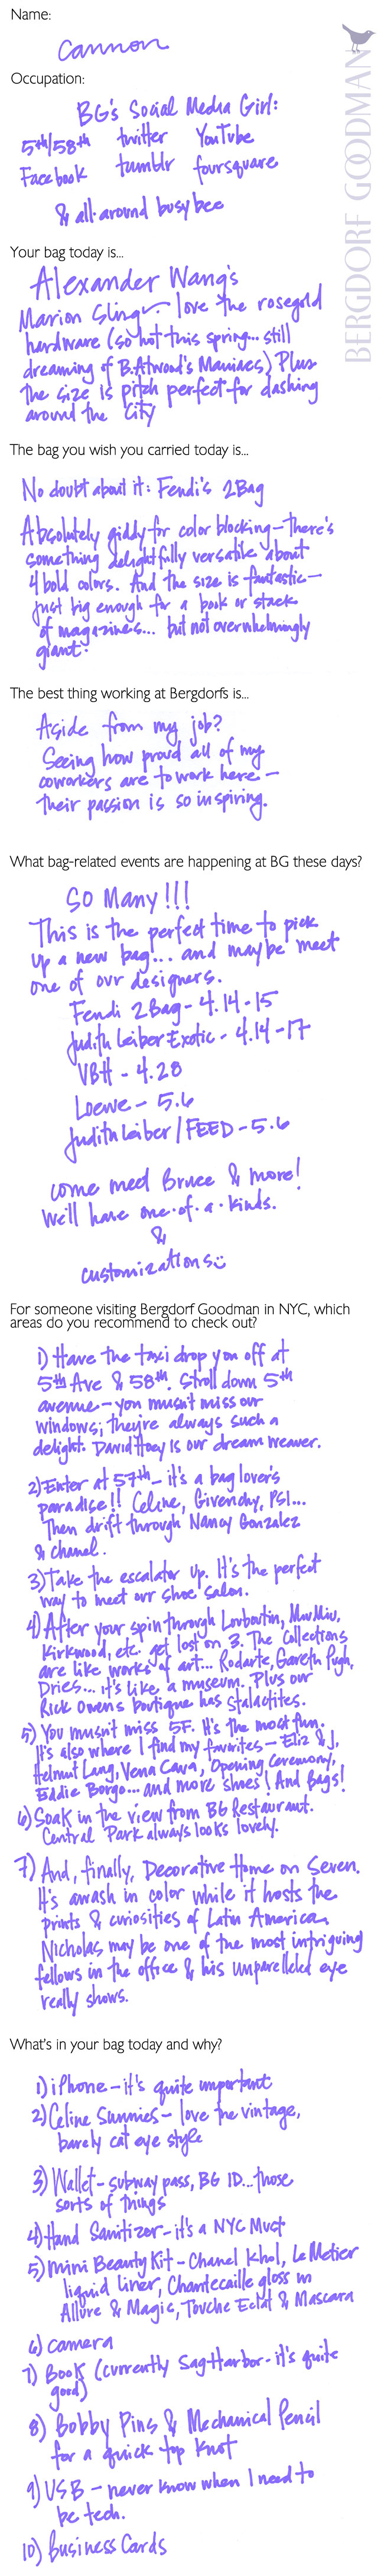 Name:
Cannon
BERGDORF GOODMAN
Occupation:
BG's Social Media Girl:
5th/58th twitter YouTube
Facebook tumblr foursquare
& all-around busy bee
Your bag today is...
Alexander Wang's
Marion Sling - love the rosegold
hardware (so hot this spring... still
dreaming of B.Atwood's Maniacs) Plus
the size is pitch perfect for dashing
around the city
The bag you wish you carried today is...
No doubt about it: Fendi's 2Bag
Absolutely giddy for color blocking - there's
something delightfully versatile about
4 bold colors. And the size is fantastic -
just big enough for a book or stack
of magazines... but not overwhelmingly
giant.
The best thing working at Bergdorfs is...
Aside from my job?
Seeing how proud all of my
coworkers are to work here -
their passion is so inspiring.
What bag-related events are happening at BG these days?
SO Many!!!
This is the perfect time to pick
up a new bag... and maybe meet
one of our designers.
Fendi 2Bag - 4.14-15
Judith Leiber Exotic - 4.14-17
VBH - 4.28
Loewe - 5.6
Judith Leiber/FEED - 5.6
come meet Bruce & more!
We'll have one-of-a-kinds.
&
customizations
For someone visiting Bergdorf Goodman in NYC, which
areas do you recommend to check out?
1) Have the taxi drop you off at
5th Ave & 58th. Stroll down 5th
avenue - you musn't miss our
windows; they're always such a
delight. David Hoey is our dream weaver.
2) Enter at 57th - it's a bag lover's
paradise!! Celine, Givenchy, PS1...
Then drift through Nancy Gonzalez
& chanel.
3) Take the escalator up. It's the perfect
way to meet our shoe salon.
4) After your spin through Louboutin, Miu Miu,
Kirkwood, etc. get lost on 3. The Collections
are like works of art... Rodarte, Gareth Pugh,
Dries... it's like a museum. Plus our
Rick Owens boutique has stalactites.
5) You musn't miss 5F. It's the most fun.
It's also where I find my favorites - Eliz & J,
Helmut Lang, Vena Cava, Opening Ceremony,
Eddie Borgo... and more shoes! And Bags!
6) Soak in the view from BG Restaurant.
Central Park always looks lovely.
7) And, finally, Decorative Home on Seven.
It's awash in color while it hosts the
prints & curiosities of Latin America.
Nicholas may be one of the most intriguing
fellows in the office & his unparelleled eye
really shows.
What's in your bag today and why?
1) iPhone - it's quite important
2) Celine Sunnies - love the vintage,
barely cat eye style
3) Wallet - subway pass, BG ID... those
sorts of things
4) Hand Sanitizer - it's a NYC Must
5) Mini Beauty Kit - Chanel Khol, Le Metier
liquid liner, Chantecaille gloss in
Allure & Magic, Touche Eclat & Mascara
6) camera
7) Book (currently Sag Harbor - it's quite
good)
8) Bobby Pins & Mechanical Pencil
for a quick top knot
9) USB - never know when I need to
be tech.
10) Business Cards